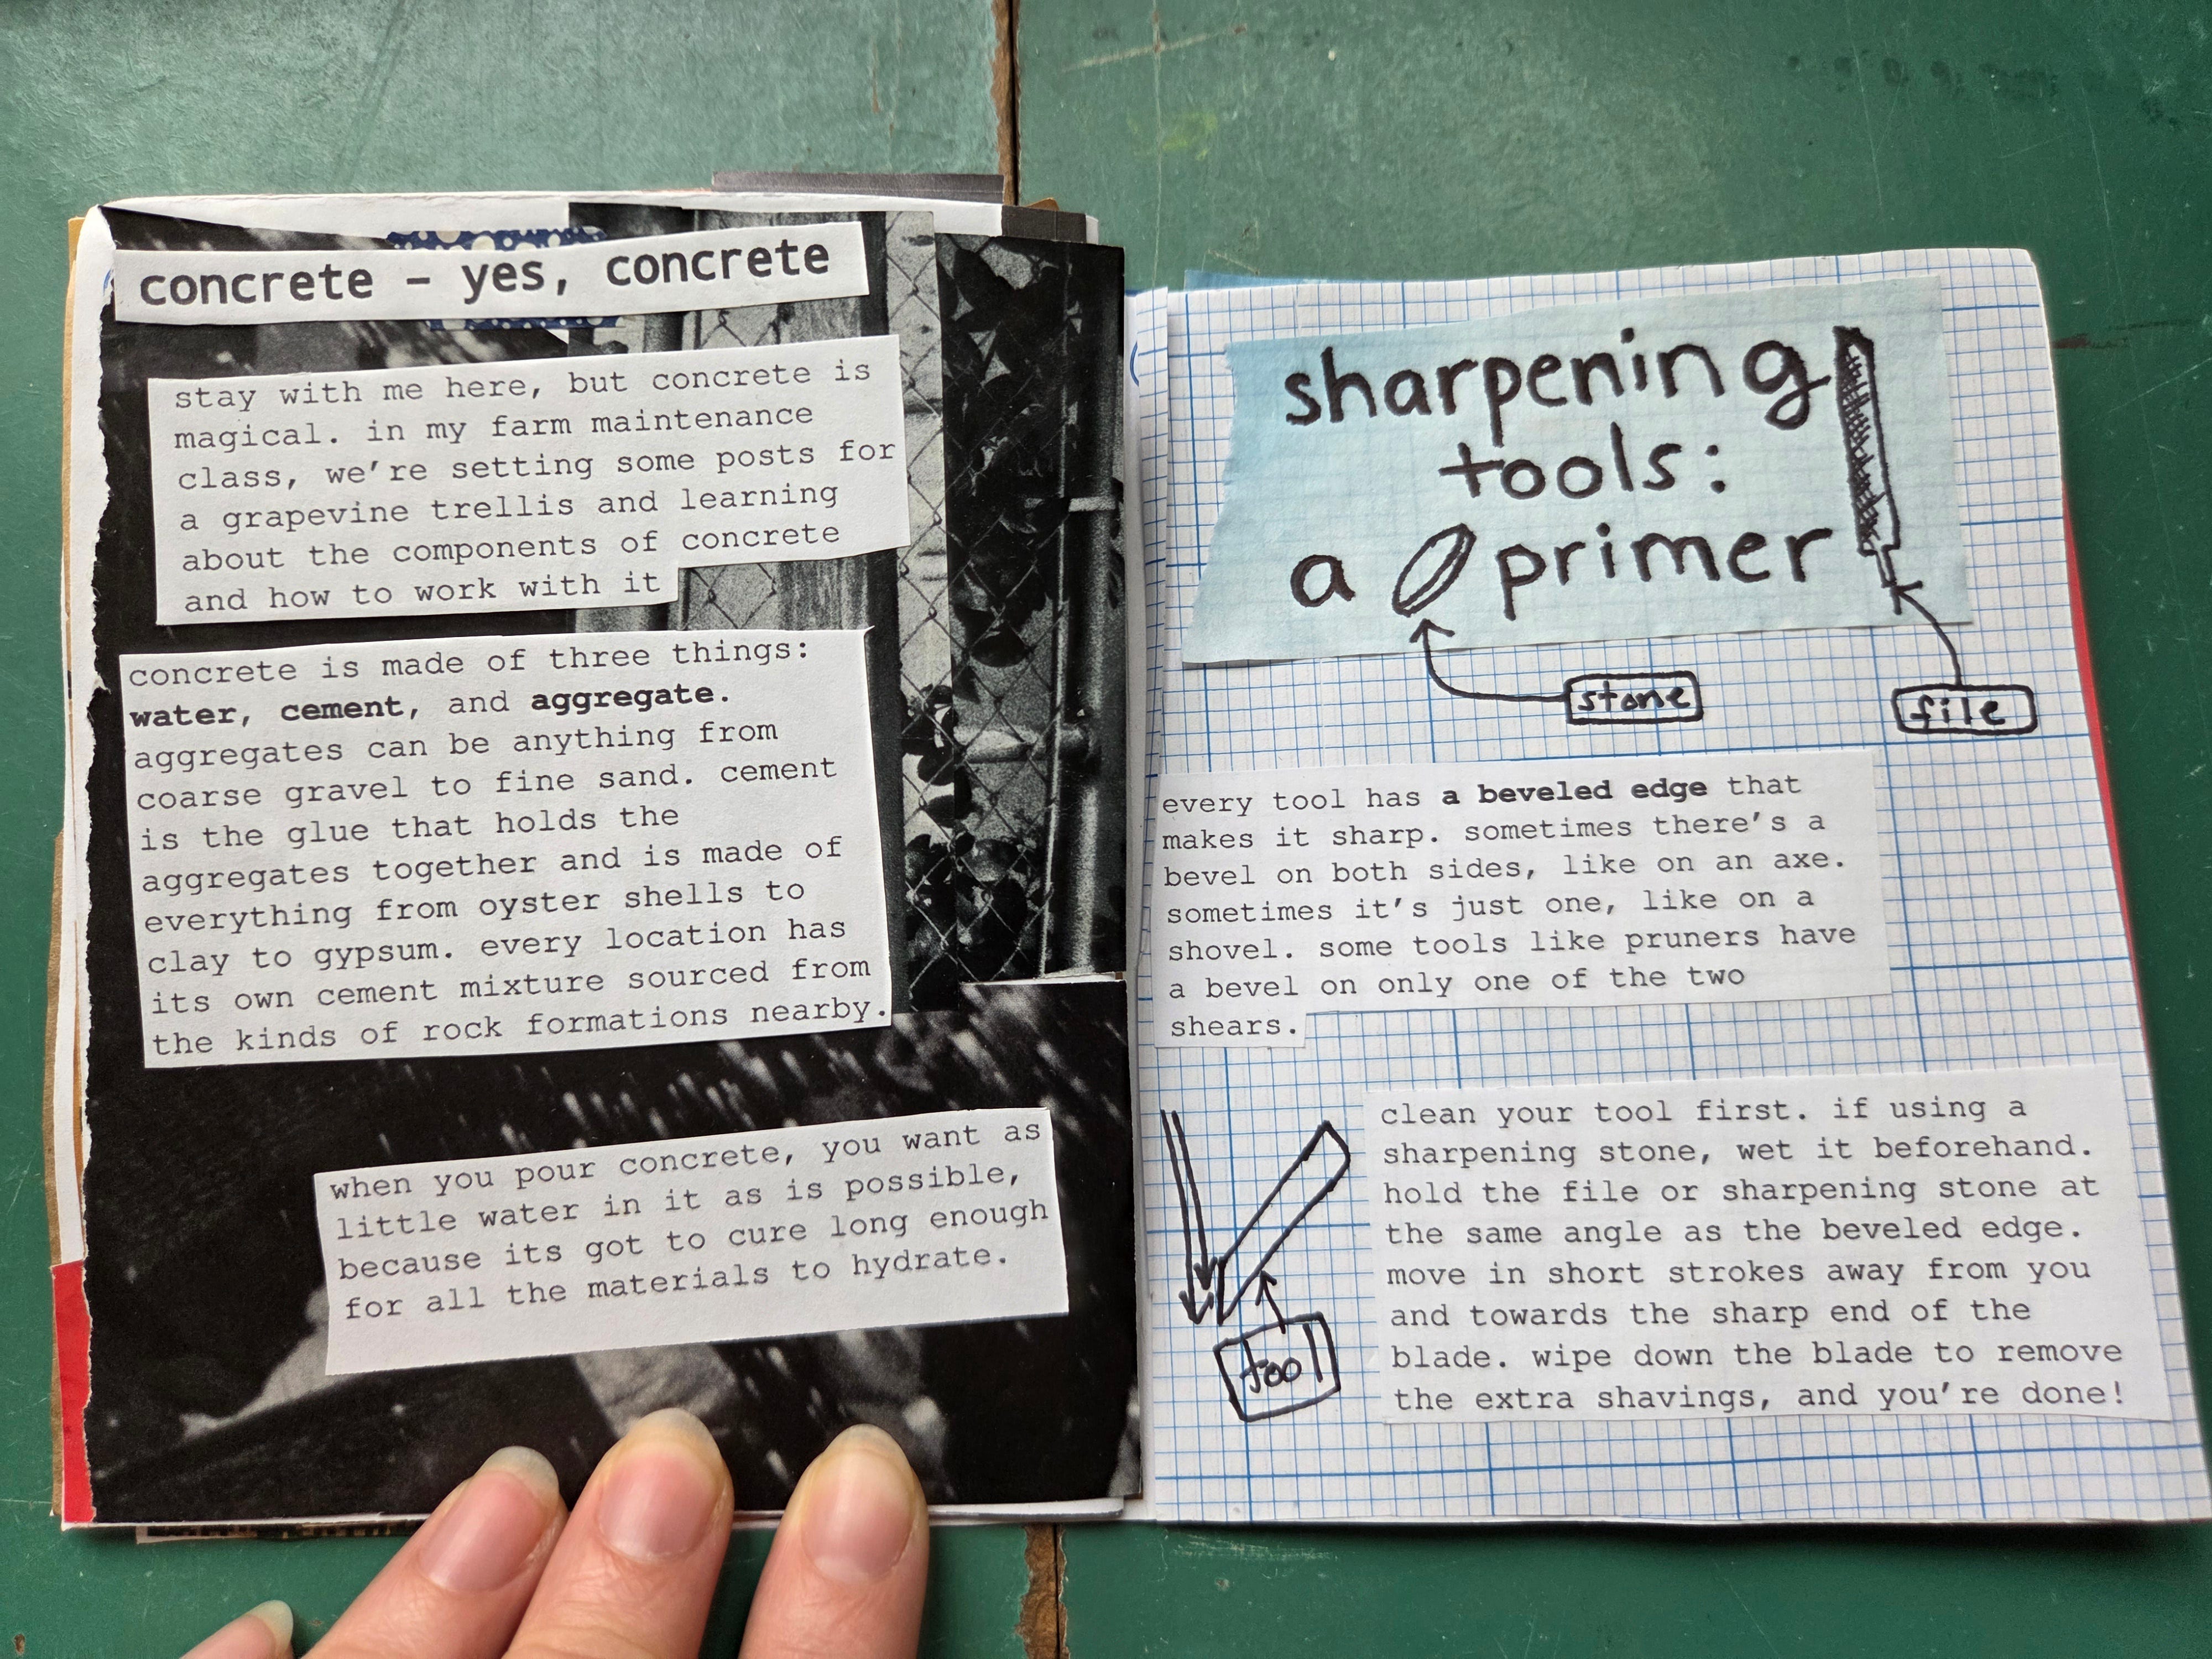 concrete – yes, concrete
stay with me here, but concrete is
magical. in my farm maintenance
class, we're setting some posts for
a grapevine trellis and learning
about the components of concrete
and how to work with it
concrete is made of three things:
water, cement, and aggregate.
aggregates can be anything from
coarse gravel to fine sand. cement
is the glue that holds the
aggregates together and is made of
everything from oyster shells to
clay to gypsum. every location has
its own cement mixture sourced from
the kinds of rock formations nearby.
when you pour concrete, you want as
little water in it as is possible,
because its got to cure long enough
for all the materials to hydrate.
sharpening
tools:
a primer
stone
file
every tool has a beveled edge that
makes it sharp. sometimes there's a
bevel on both sides, like on an axe.
sometimes it's just one, like on a
shovel. some tools like pruners have
a bevel on only one of the two
shears.
clean your tool first. if using a
sharpening stone, wet it beforehand.
hold the file or sharpening stone at
the same angle as the beveled edge.
move in short strokes away from you
and towards the sharp end of the
blade. wipe down the blade to remove
the extra shavings, and you're done!
tool